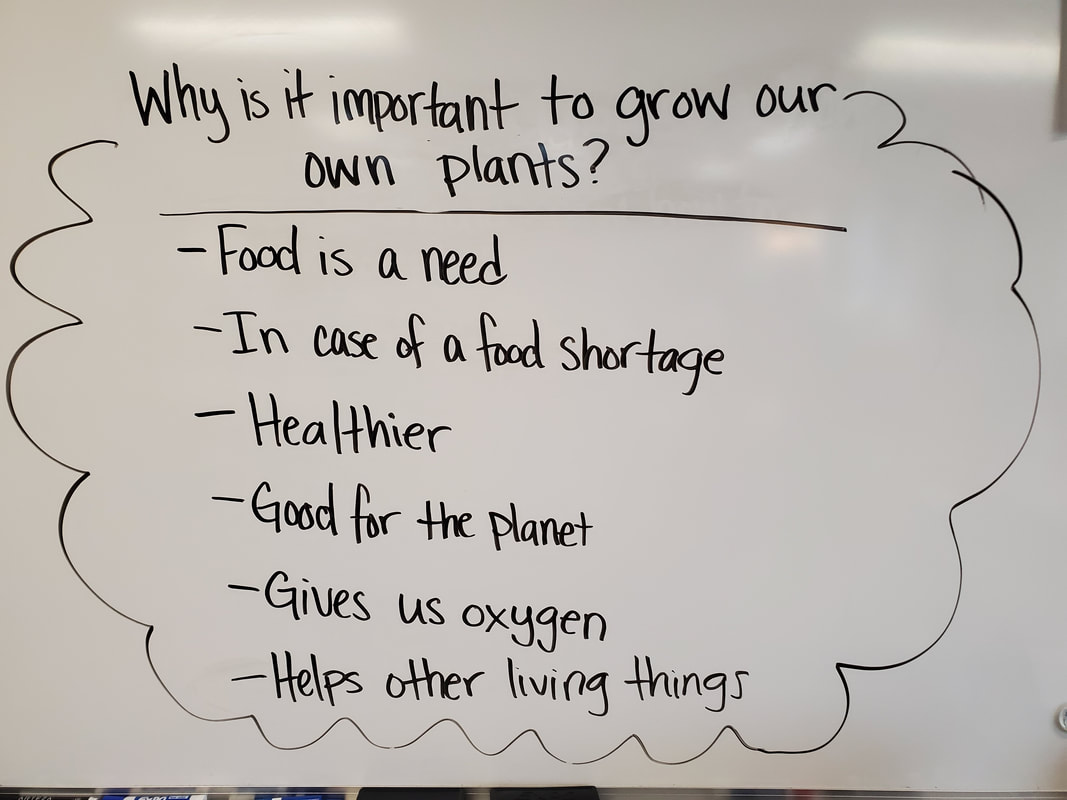 Why is it important to grow our
own plants?
- Food is a need
- In case of a food shortage
- Healthier
- Good for the planet
- Gives us oxygen
- Helps other living things
EXPO